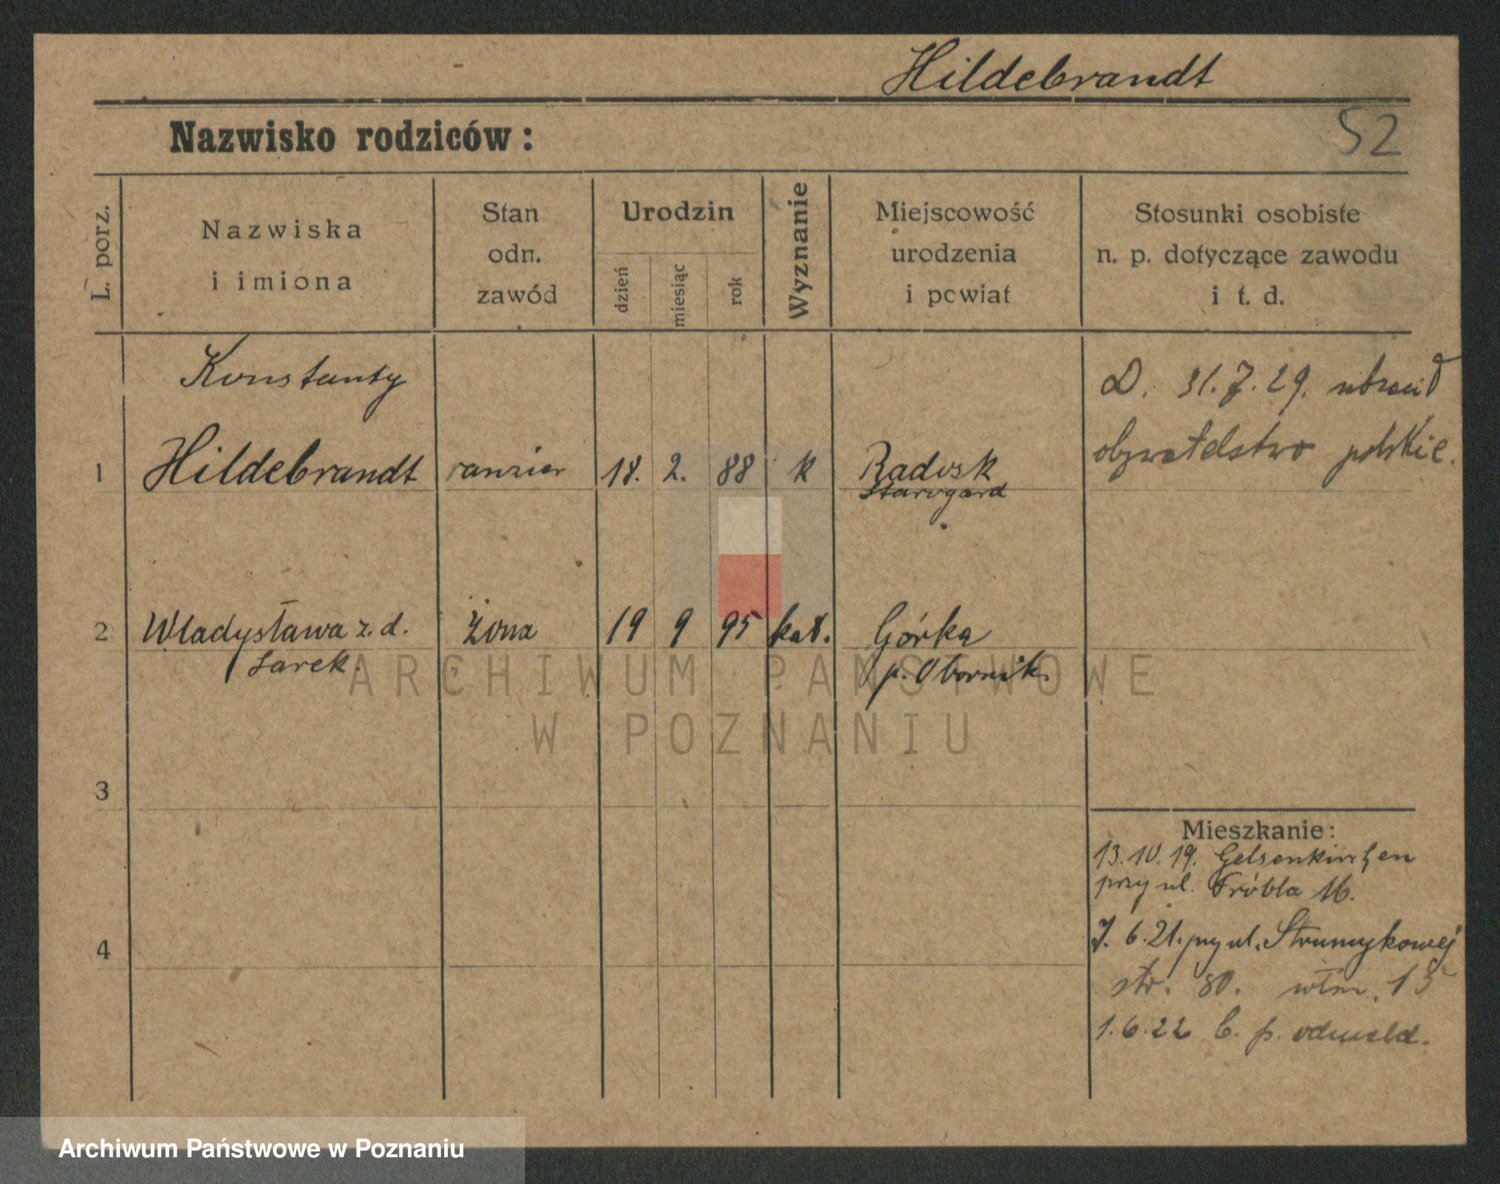 Hildebrandt
Nazwisko rodziców:
52
L. porz.
Nazwiska
i imiona
Stan
odn.
zawód
Urodzin
dzień
miesiąc
rok
Wyznanie
Miejscowość
urodzenia
i powiat
Stosunki osobiste
n. p. dotyczące zawodu
i t. d.
Konstanty
1 Hildebrandt 18. 2. 88 k Radosk
Starogard
D. 31.7.29. utracił
obywatelstwo polskie.
2 Władysława z. d. Żona 19 9 95 kat. Górka
Larek p. Obornik.
3
4
Mieszkanie:
13.10.19. Gelsenkirchen
przy ul. Fröbla 16.
7.6.21. przy ul. Strumykowej
str. 80. włm. 15
1.6.22 C. p. odmeld.
ARCHIWUM PAŃSTWOWE
W POZNANIU
Archiwum Państwowe w Poznaniu